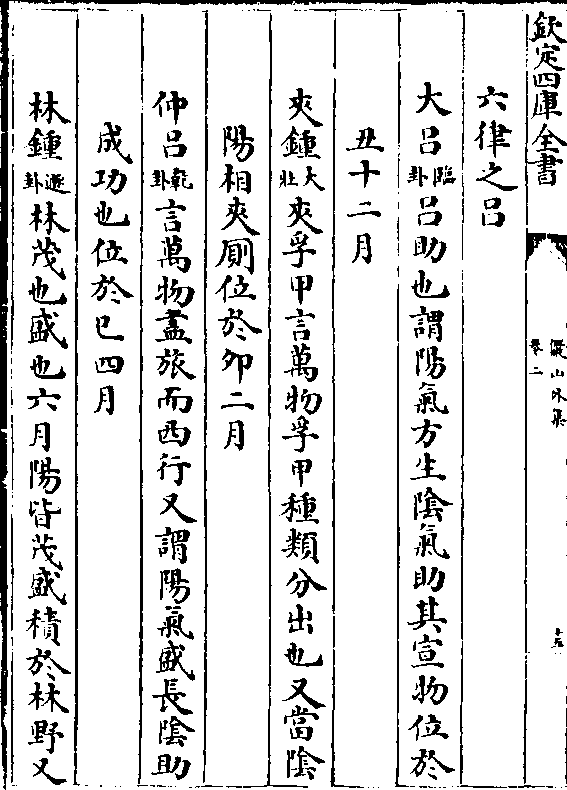 欽定四庫全書
儼山外集
卷二
十五
六律之呂
大呂臨卦呂助也謂陽氣方生陰氣助其宣物位於
丑十二月
夾鍾大壯夾孚甲言萬物孚甲種類分出也又當陰
陽相夾厠位於夘二月
仲呂乾卦言萬物盡旅而西行又謂陽氣盛長陰助
成功也位於巳四月
林鍾遯卦林茂也盛也六月陽皆茂盛積於林野又